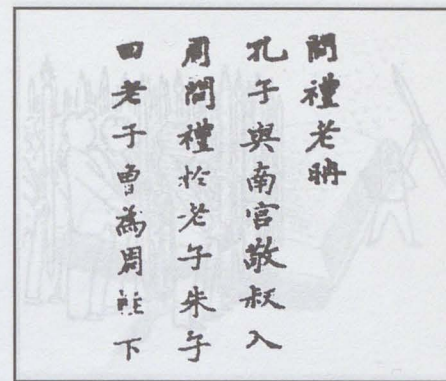 問禮老聃
孔子與南宮敬叔入
周問禮於老子朱子
曰老子曾為周柱下